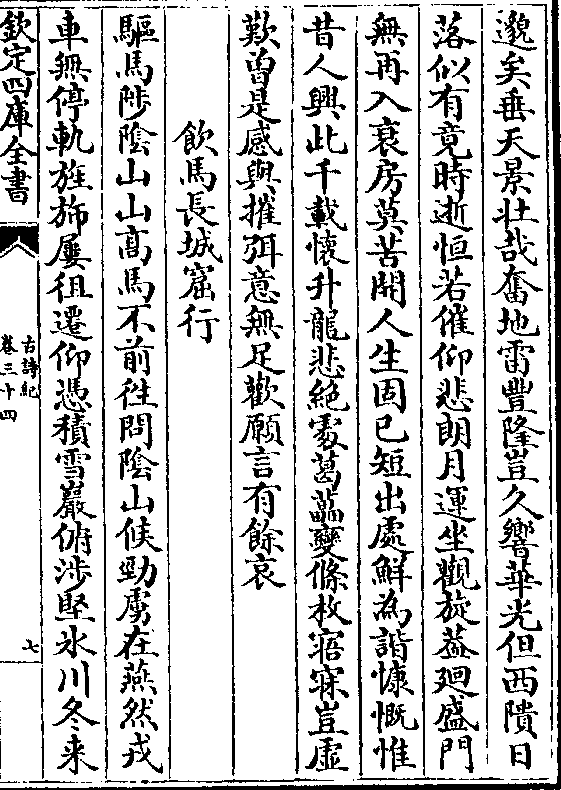 邈矣垂天景壯哉奮地雷豐隆豈久響華光但西隤日
落似有竟時逝恒若催仰悲朗月運坐觀旋葢廻盛門
無再入衰房莫苦開人生固已短出處鮮為諧慷慨惟
昔人興此千載懷升龍悲絶處葛藟變條枚寤寐豈虚
歎曾是感與摧弭意無足歡願言有餘哀
飲馬長城窟行
驅馬陟陰山山髙馬不前徃問陰山候勁虜在燕然戎
車無停軌旌斾屢徂遷仰憑積雪巖俯涉堅氷川冬來
欽定四庫全書
古詩紀
卷三十四
七